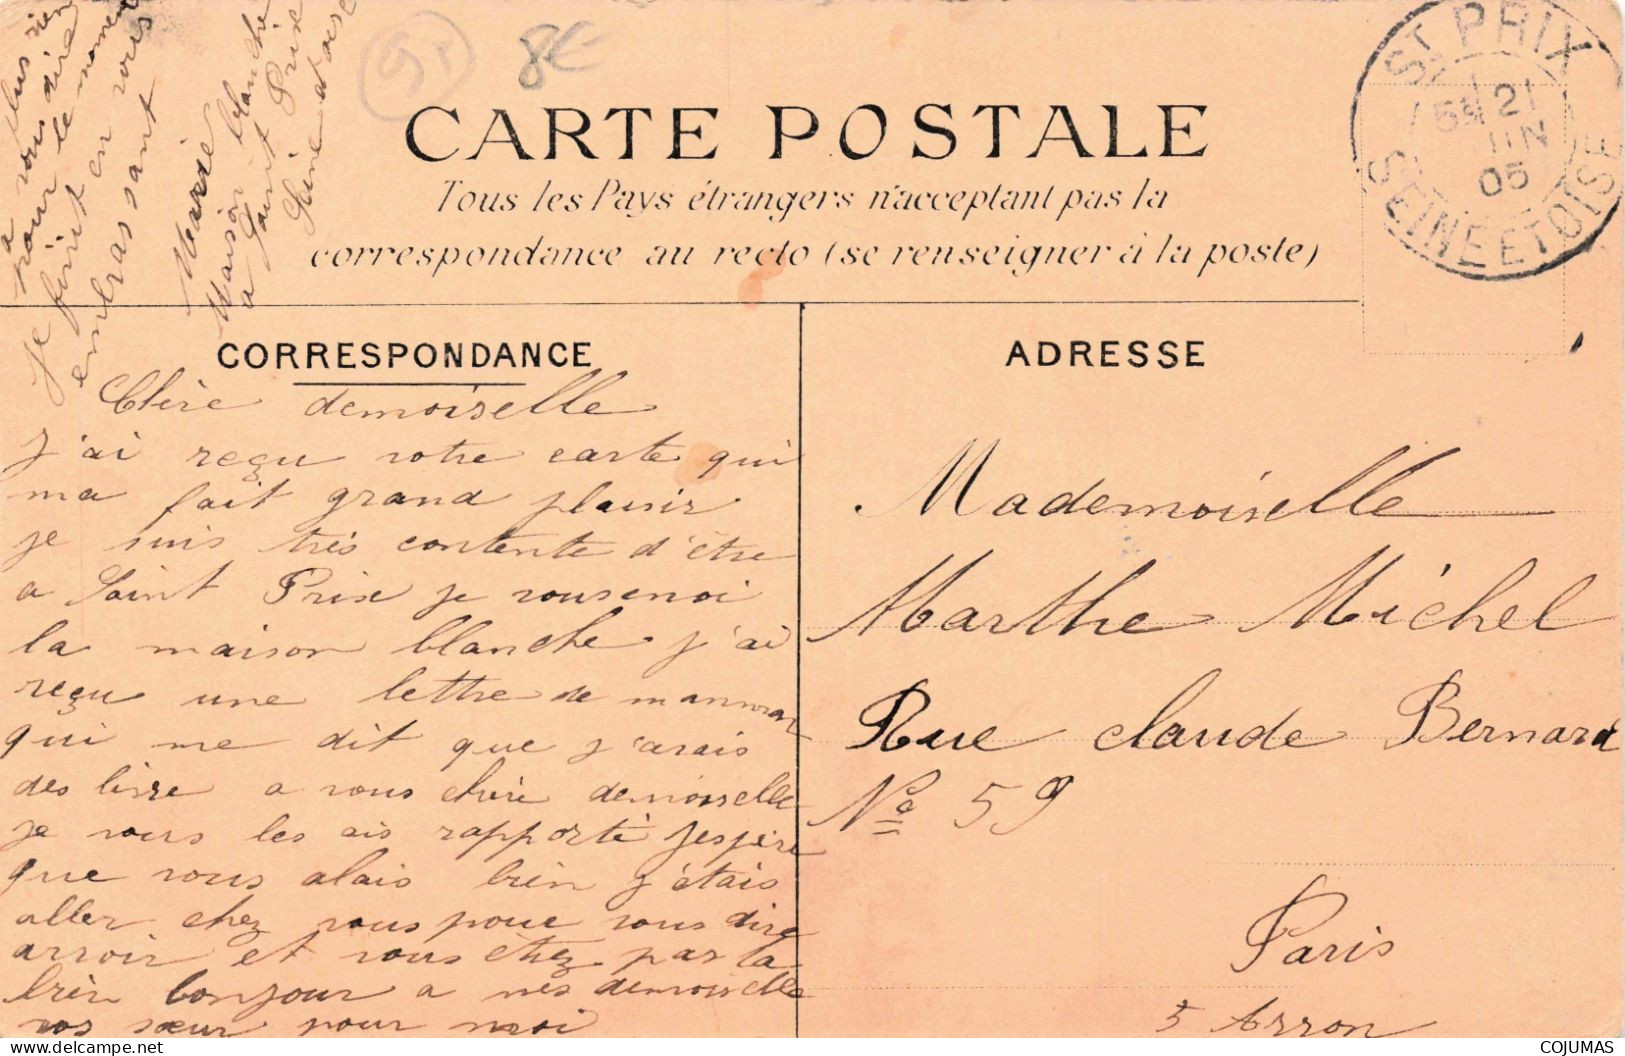 95
8€
CARTE POSTALE
Tous les Pays étrangers n'acceptant pas la
correspondance au recto (se renseigner à la poste)
ST PRIX
5E 21
JUIN
05
SEINE ET OISE
CORRESPONDANCE
ADRESSE
Chère demoiselle
j'ai reçu votre carte qui
ma fait grand plaisir
je suis très contente d'être
a Saint Prix je vous envoi
la maison blanche j'ai
reçu une lettre de manman
qui me dit que j'avais
des livre a vous chère demoiselle
je vous les ais rapporté jespère
que vous alais bien j'étais
aller chez vous pour vous dire
arvoir et vous étiez pas la
bien bonjour a mes demoiselle
vos sœur pour moi
plus rien
a vous dire
pour le moment
je finit en vous
embrassant
Marie
Maison blanche
a Saint Prix
Seine et oise
Mademoiselle
Marthe Michel
Rue claude Bernard
No 59
Paris
5 Arron
COJUMAS